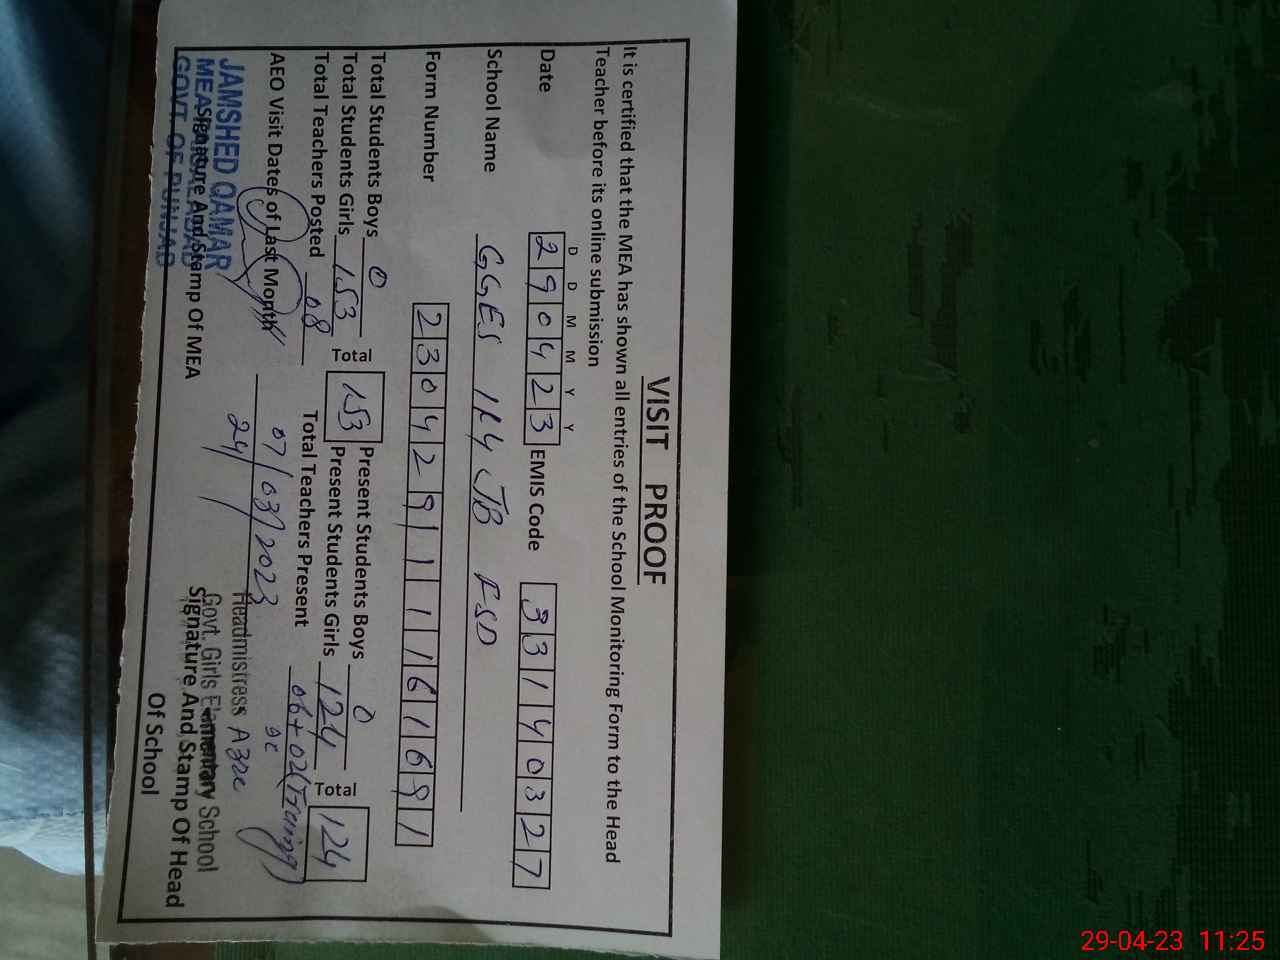 VISIT PROOF
It is certified that the MEA has shown all entries of the School Monitoring Form to the Head
Teacher before its online submission
D D M M Y Y
Date 290423 EMIS Code 33140327
School Name GGES 124 JB FSD
Form Number 23042911161691
Total Students Boys 0 Present Students Boys 0
Total Students Girls 153 Total 153 Present Students Girls 124 Total 124
Total Teachers Posted 08 Total Teachers Present 06+02(Traing)
AEO Visit Dates of Last Month 07/03/2023
24
JAMSHED QAMAR
MEA
GOVT. OF PUNJAB
Signature And Stamp Of MEA
Headmistress
Govt. Girls Elementary School
Signature And Stamp Of Head
Of School
29-04-23 11:25